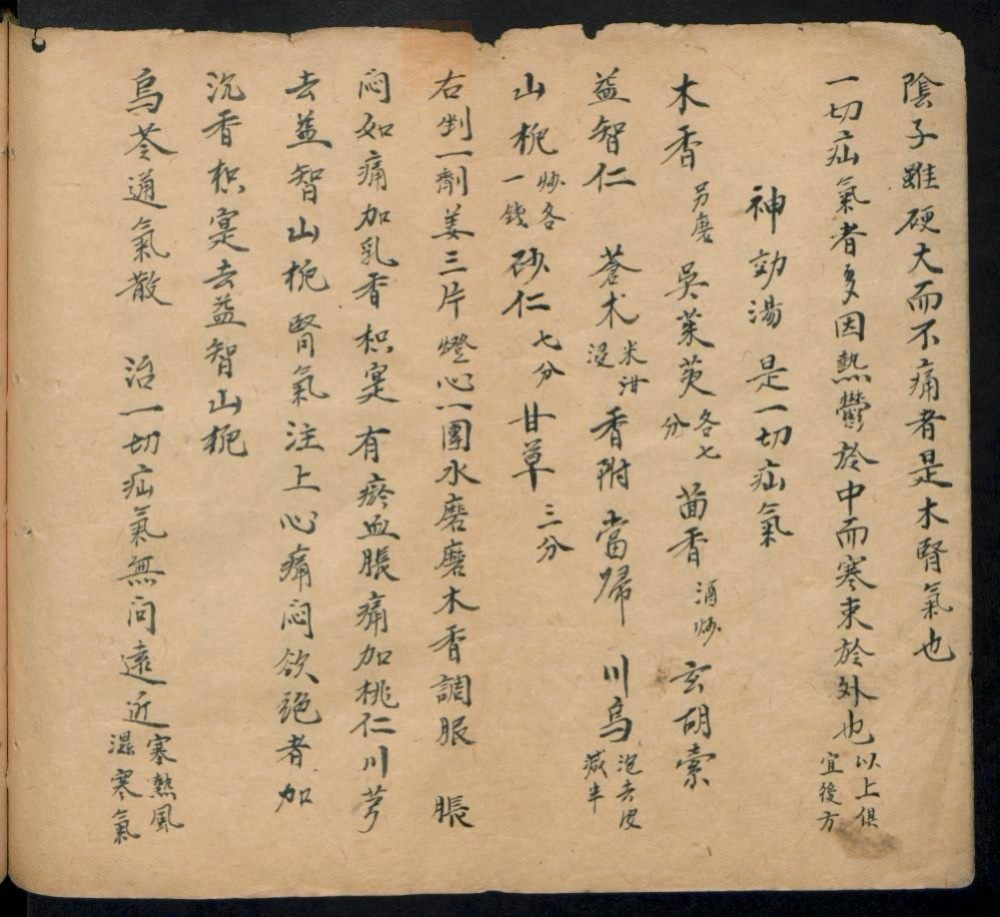 陰子雖硬大而不痛者是木腎氣也
一切疝氣者多因熱鬱於中而寒束於外也以上俱宜後方
神効湯 是一切疝氣
木香另磨 吳茱萸各七分 茴香酒炒 玄胡索
益智仁 蒼朮米泔浸 香附 當歸 川烏泡去皮減半
山梔炒各一錢 砂仁七分 甘草三分
右剉一劑姜三片燈心一團水磨磨木香調服 脹
悶如痛加乳香枳寔有瘀血脹痛加桃仁川芎
去益智山梔腎氣注上心痛悶欲絕者加
沉香枳寔去益智山梔
烏苓通氣散 治一切疝氣無问遠近寒熱風濕寒氣